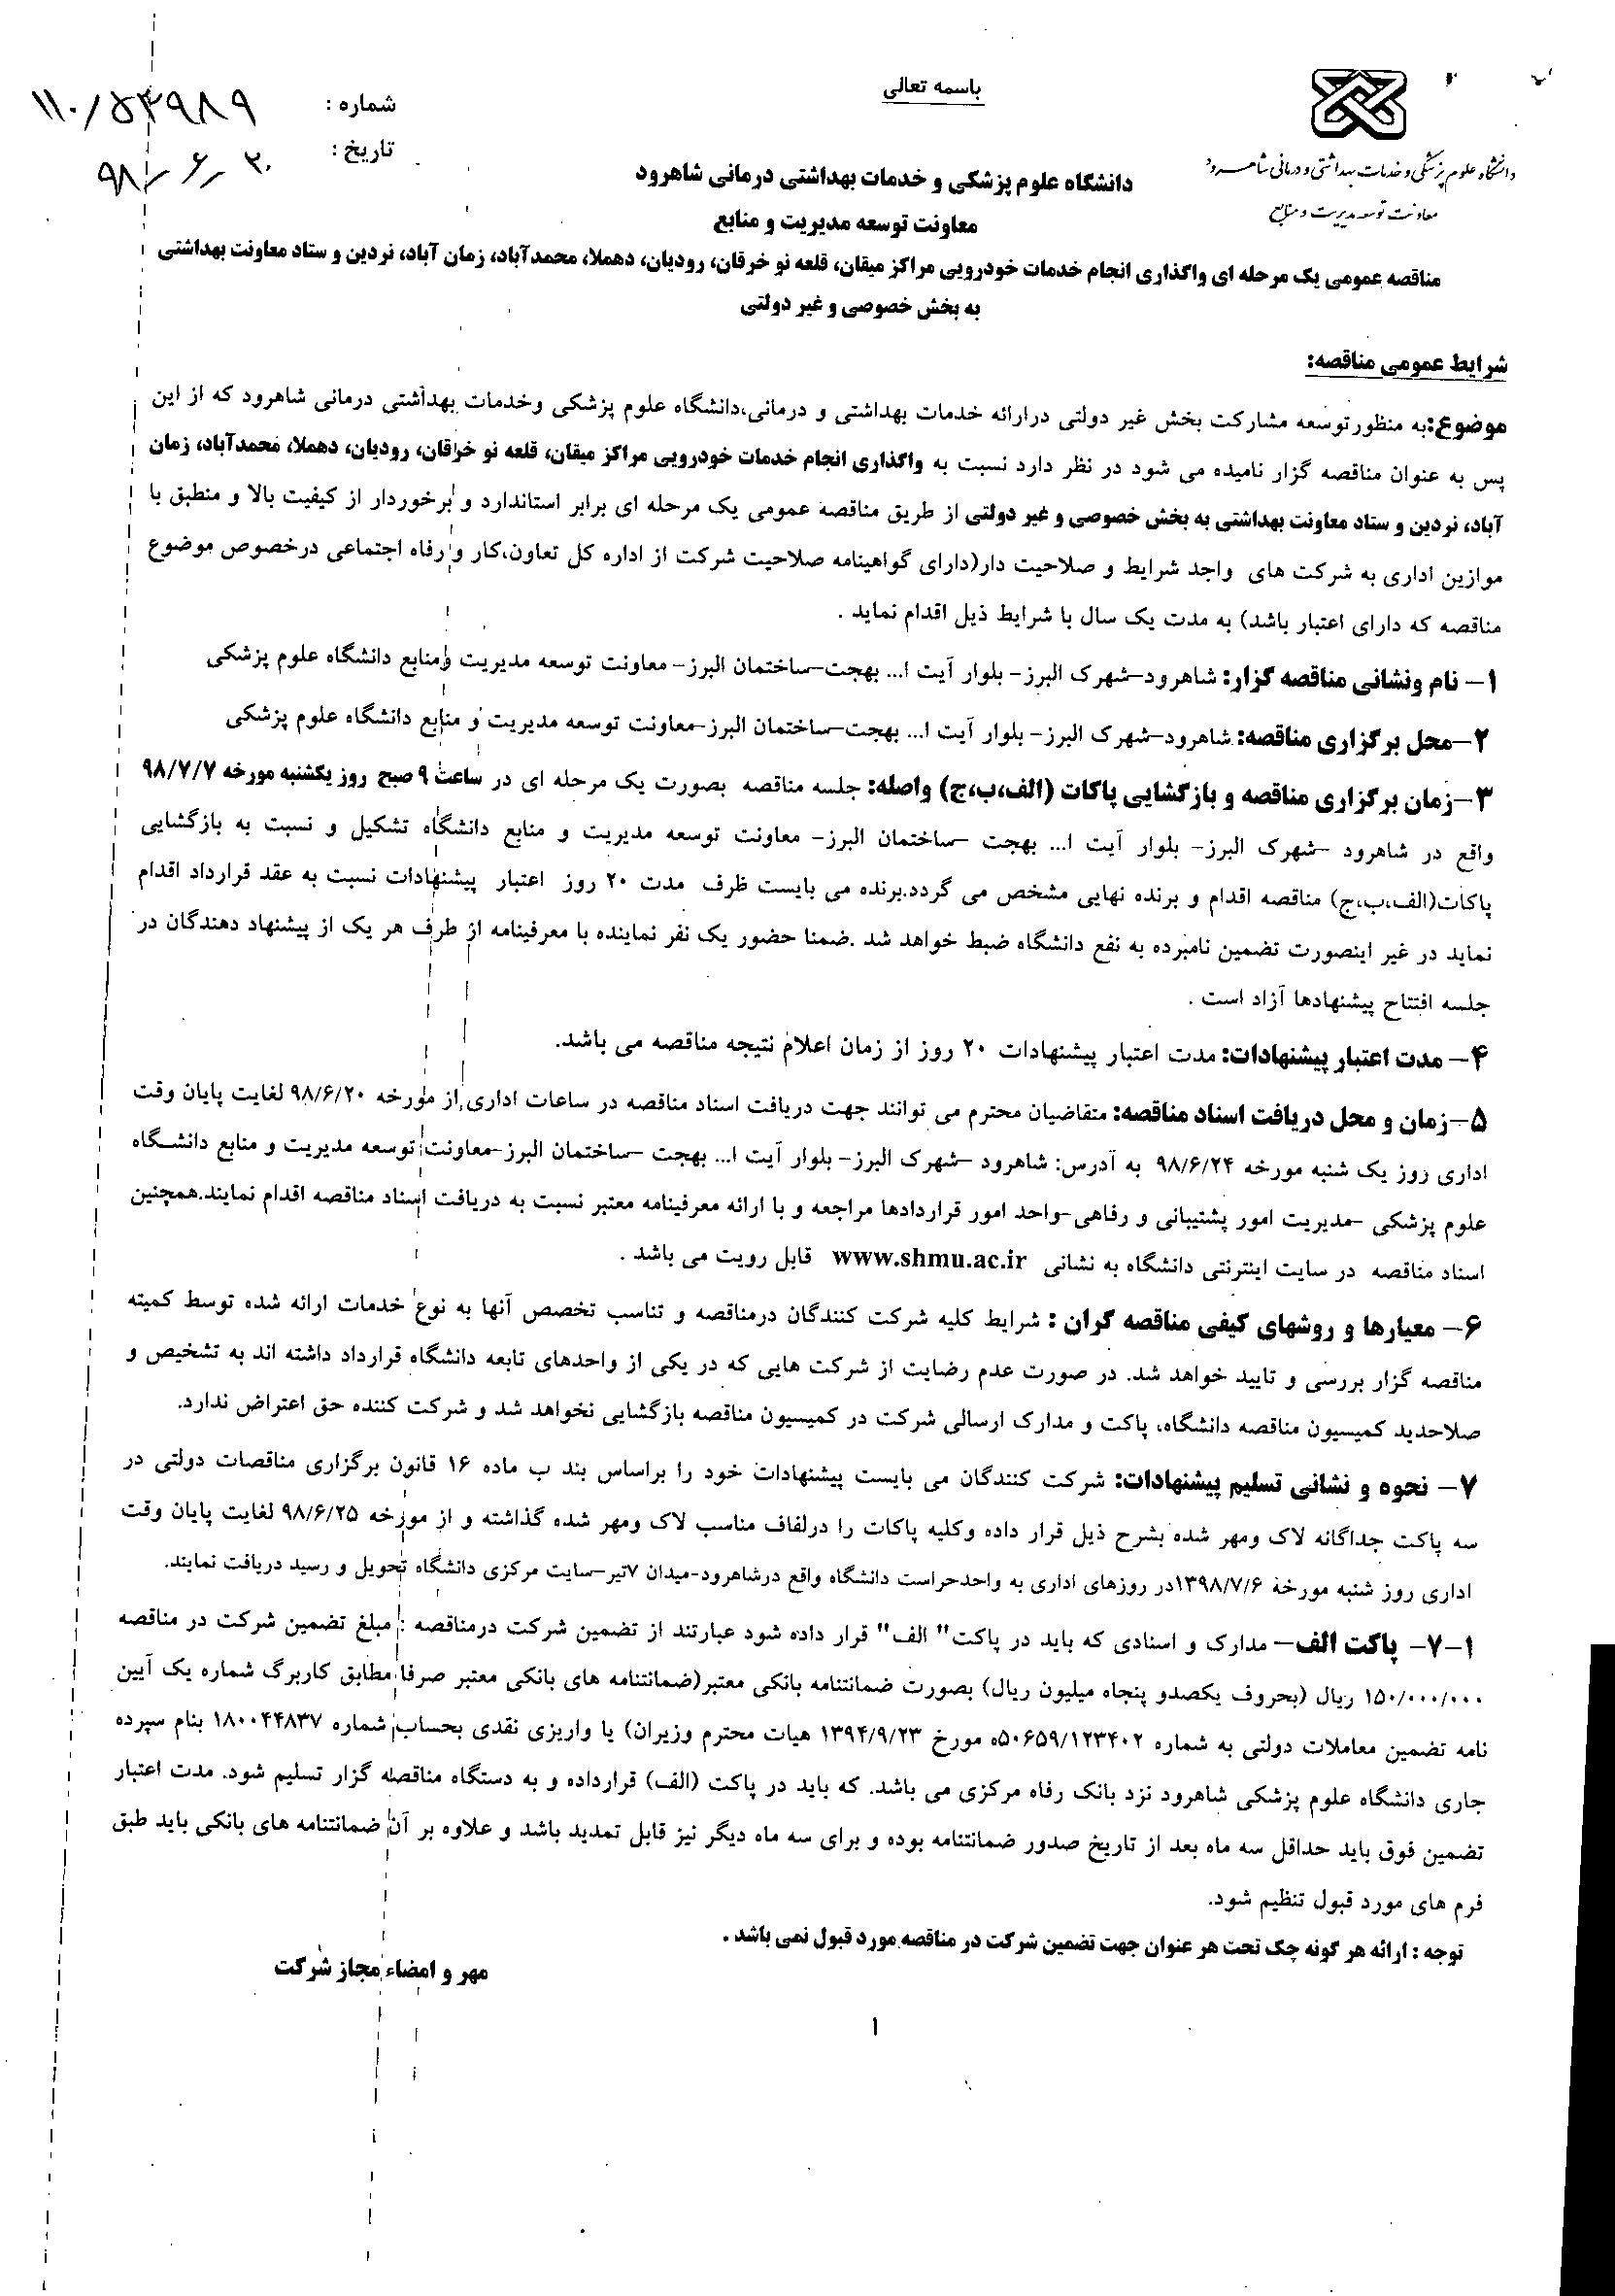 باسمه تعالی
شماره : ۱۱۰/۵۴۹۸۹
تاریخ : ۹۸/۶/۲۰
دانشگاه علوم پزشکی و خدمات بهداشتی و درمانی شاهرود
معاونت توسعه مدیریت و منابع
دانشگاه علوم پزشکی و خدمات بهداشتی درمانی شاهرود
معاونت توسعه مدیریت و منابع
مناقصه عمومی یک مرحله ای واگذاری انجام خدمات خودرویی مراکز میقان، قلعه نو خرقان، رودیان، دهملا، محمدآباد، زمان آباد، نردین و ستاد معاونت بهداشتی
به بخش خصوصی و غیر دولتی
شرایط عمومی مناقصه:
موضوع:به منظورتوسعه مشارکت بخش غیر دولتی درارائه خدمات بهداشتی و درمانی،دانشگاه علوم پزشکی وخدمات بهداشتی درمانی شاهرود که از این
پس به عنوان مناقصه گزار نامیده می شود در نظر دارد نسبت به واگذاری انجام خدمات خودرویی مراکز میقان، قلعه نو خرقان، رودیان، دهملا، محمدآباد، زمان
آباد، نردین و ستاد معاونت بهداشتی به بخش خصوصی و غیر دولتی از طریق مناقصه عمومی یک مرحله ای برابر استاندارد و برخوردار از کیفیت بالا و منطبق با
موازین اداری به شرکت های واجد شرایط و صلاحیت دار(دارای گواهینامه صلاحیت شرکت از اداره کل تعاون،کار و رفاه اجتماعی درخصوص موضوع
مناقصه که دارای اعتبار باشد) به مدت یک سال با شرایط ذیل اقدام نماید .
۱- نام ونشانی مناقصه گزار: شاهرود-شهرک البرز- بلوار آیت ا... بهجت-ساختمان البرز- معاونت توسعه مدیریت ومنابع دانشگاه علوم پزشکی
۲-محل برگزاری مناقصه: شاهرود-شهرک البرز- بلوار آیت ا... بهجت-ساختمان البرز-معاونت توسعه مدیریت و منابع دانشگاه علوم پزشکی
۳-زمان برگزاری مناقصه و بازگشایی پاکات (الف،ب،ج) واصله: جلسه مناقصه بصورت یک مرحله ای در ساعت ۹ صبح روز یکشنبه مورخه ۹۸/۷/۷
واقع در شاهرود -شهرک البرز- بلوار آیت ا... بهجت -ساختمان البرز- معاونت توسعه مدیریت و منابع دانشگاه تشکیل و نسبت به بازگشایی
پاکات(الف،ب،ج) مناقصه اقدام و برنده نهایی مشخص می گردد.برنده می بایست ظرف مدت ۲۰ روز اعتبار پیشنهادات نسبت به عقد قرارداد اقدام
نماید در غیر اینصورت تضمین نامبرده به نفع دانشگاه ضبط خواهد شد .ضمنا حضور یک نفر نماینده با معرفینامه از طرف هر یک از پیشنهاد دهندگان در
جلسه افتتاح پیشنهادها آزاد است .
۴- مدت اعتبار پیشنهادات: مدت اعتبار پیشنهادات ۲۰ روز از زمان اعلام نتیجه مناقصه می باشد.
۵-زمان و محل دریافت اسناد مناقصه: متقاضیان محترم می توانند جهت دریافت اسناد مناقصه در ساعات اداری از مورخه ۹۸/۶/۲۰ لغایت پایان وقت
اداری روز یک شنبه مورخه ۹۸/۶/۲۴ به آدرس: شاهرود -شهرک البرز- بلوار آیت ا... بهجت -ساختمان البرز-معاونت توسعه مدیریت و منابع دانشگاه
علوم پزشکی -مدیریت امور پشتیبانی و رفاهی-واحد امور قراردادها مراجعه و با ارائه معرفینامه معتبر نسبت به دریافت اسناد مناقصه اقدام نمایند.همچنین
اسناد مناقصه در سایت اینترنتی دانشگاه به نشانی www.shmu.ac.ir قابل رویت می باشد .
۶- معیارها و روشهای کیفی مناقصه گران : شرایط کلیه شرکت کنندگان درمناقصه و تناسب تخصص آنها به نوع خدمات ارائه شده توسط کمیته
مناقصه گزار بررسی و تایید خواهد شد. در صورت عدم رضایت از شرکت هایی که در یکی از واحدهای تابعه دانشگاه قرارداد داشته اند به تشخیص و
صلاحدید کمیسیون مناقصه دانشگاه، پاکت و مدارک ارسالی شرکت در کمیسیون مناقصه بازگشایی نخواهد شد و شرکت کننده حق اعتراض ندارد.
۷- نحوه و نشانی تسلیم پیشنهادات: شرکت کنندگان می بایست پیشنهادات خود را براساس بند ب ماده ۱۶ قانون برگزاری مناقصات دولتی در
سه پاکت جداگانه لاک ومهر شده بشرح ذیل قرار داده وکلیه پاکات را درلفاف مناسب لاک ومهر شده گذاشته و از مورخه ۹۸/۶/۲۵ لغایت پایان وقت
اداری روز شنبه مورخه ۱۳۹۸/۷/۶در روزهای اداری به واحدحراست دانشگاه واقع درشاهرود-میدان ۷تیر-سایت مرکزی دانشگاه تحویل و رسید دریافت نمایند.
۷-۱- پاکت الف- مدارک و اسنادی که باید در پاکت" الف" قرار داده شود عبارتند از تضمین شرکت درمناقصه : مبلغ تضمین شرکت در مناقصه
۱۵۰/۰۰۰/۰۰۰ ریال (بحروف یکصدو پنجاه میلیون ریال) بصورت ضمانتنامه بانکی معتبر(ضمانتنامه های بانکی معتبر صرفا مطابق کاربرگ شماره یک آیین
نامه تضمین معاملات دولتی به شماره ۱۲۳۴۰۲/ت۵۰۶۵۹ه مورخ ۱۳۹۴/۹/۲۳ هیات محترم وزیران) یا واریزی نقدی بحساب شماره ۱۸۰۰۴۴۸۳۷ بنام سپرده
جاری دانشگاه علوم پزشکی شاهرود نزد بانک رفاه مرکزی می باشد. که باید در پاکت (الف) قرارداده و به دستگاه مناقصه گزار تسلیم شود. مدت اعتبار
تضمین فوق باید حداقل سه ماه بعد از تاریخ صدور ضمانتنامه بوده و برای سه ماه دیگر نیز قابل تمدید باشد و علاوه بر آن ضمانتنامه های بانکی باید طبق
فرم های مورد قبول تنظیم شود.
توجه : ارائه هر گونه چک تحت هر عنوان جهت تضمین شرکت در مناقصه مورد قبول نمی باشد .
مهر و امضاء مجاز شرکت
۱